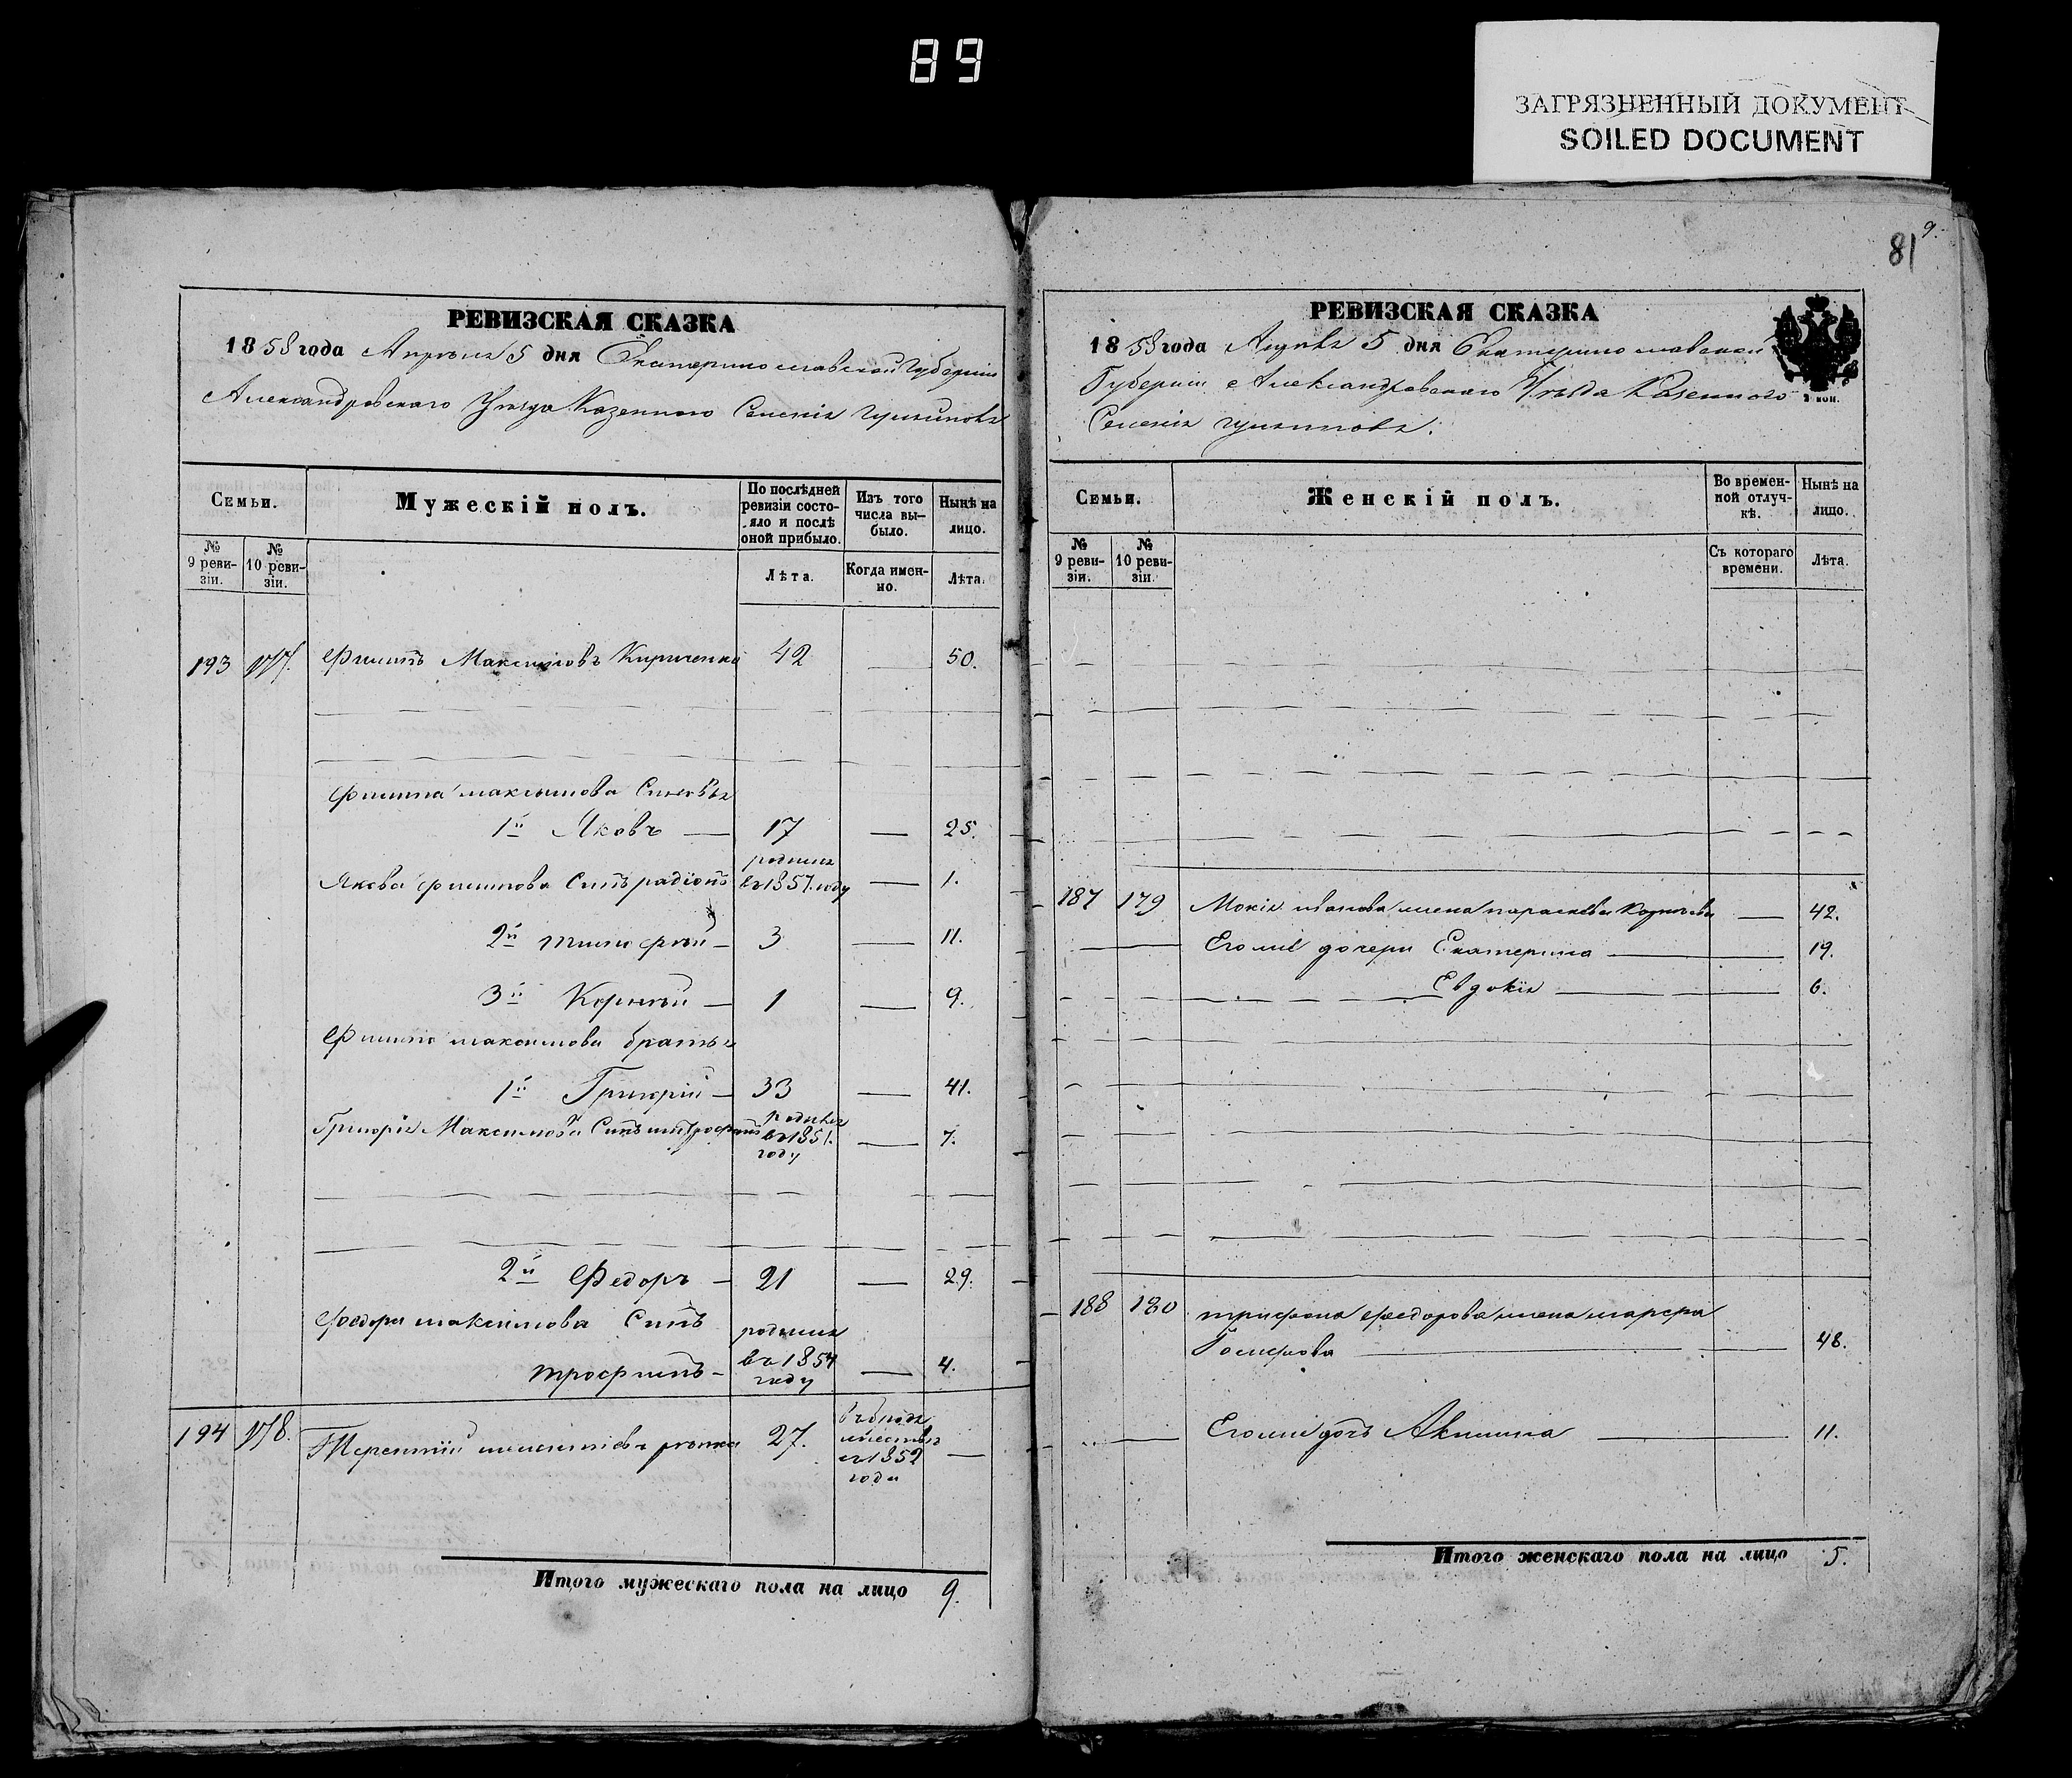 89
ЗАГРЯЗНЕННЫЙ ДОКУМЕНТ
SOILED DOCUMENT
РЕВИЗСКАЯ СКАЗКА
1858 года Апреля 5 дня Екатеринославской Губернии
Александровскаго Уезда Казенного Селенія Гуляиполя
Семьи.
Мужескій полъ.
По послѣдней ревизіи состояло и послѣ оной прибыло.
Изъ того числа выбыло.
Нынѣ на лицо.
№ 9 ревизіи.
№ 10 ревизіи.
Лѣта.
Когда именно.
Лѣта.
193 177. Филипъ Максимовъ Кириченко 42 — 50.
Филипа максимова Сыновья
1й Яковъ — 17 — 25.
Якова филипова Сынъ радіонъ родился въ 1857. году — 1.
2й тимофей — 3 — 11.
3й Корней — 1 — 9.
Филипа максимова братья
1й Григорій — 33 — 41.
Григорія Максимова Сынъ митрофанъ родился въ 1851. году — 7.
2й Федоръ — 21 — 29.
федора максимова Сынъ
трофимъ — родился въ 1854 году — 4.
194 178. Терентій 27. 1852 года —
Итого мужескаго пола на лицо 9.
9.
81
РЕВИЗСКАЯ СКАЗКА
1858 года Апреля 5 дня Екатеринославской
Губерніи Александровскаго Уезда Казенного
Селенія гуляиполя.
Семьи.
Женскій полъ.
Во временной отлучкѣ.
Нынѣ на лицо.
№ 9 ревизіи.
№ 10 ревизіи.
Съ котораго времени.
Лѣта.
187 179 Мокія иванова жена параскева — 42.
Его же дочери Екатерина — 19.
Евдокія — 6.
188 180 трифона федорова жена марфа
— 48.
Его же дочь Акилина — 11.
Итого женскаго пола на лицо 5.